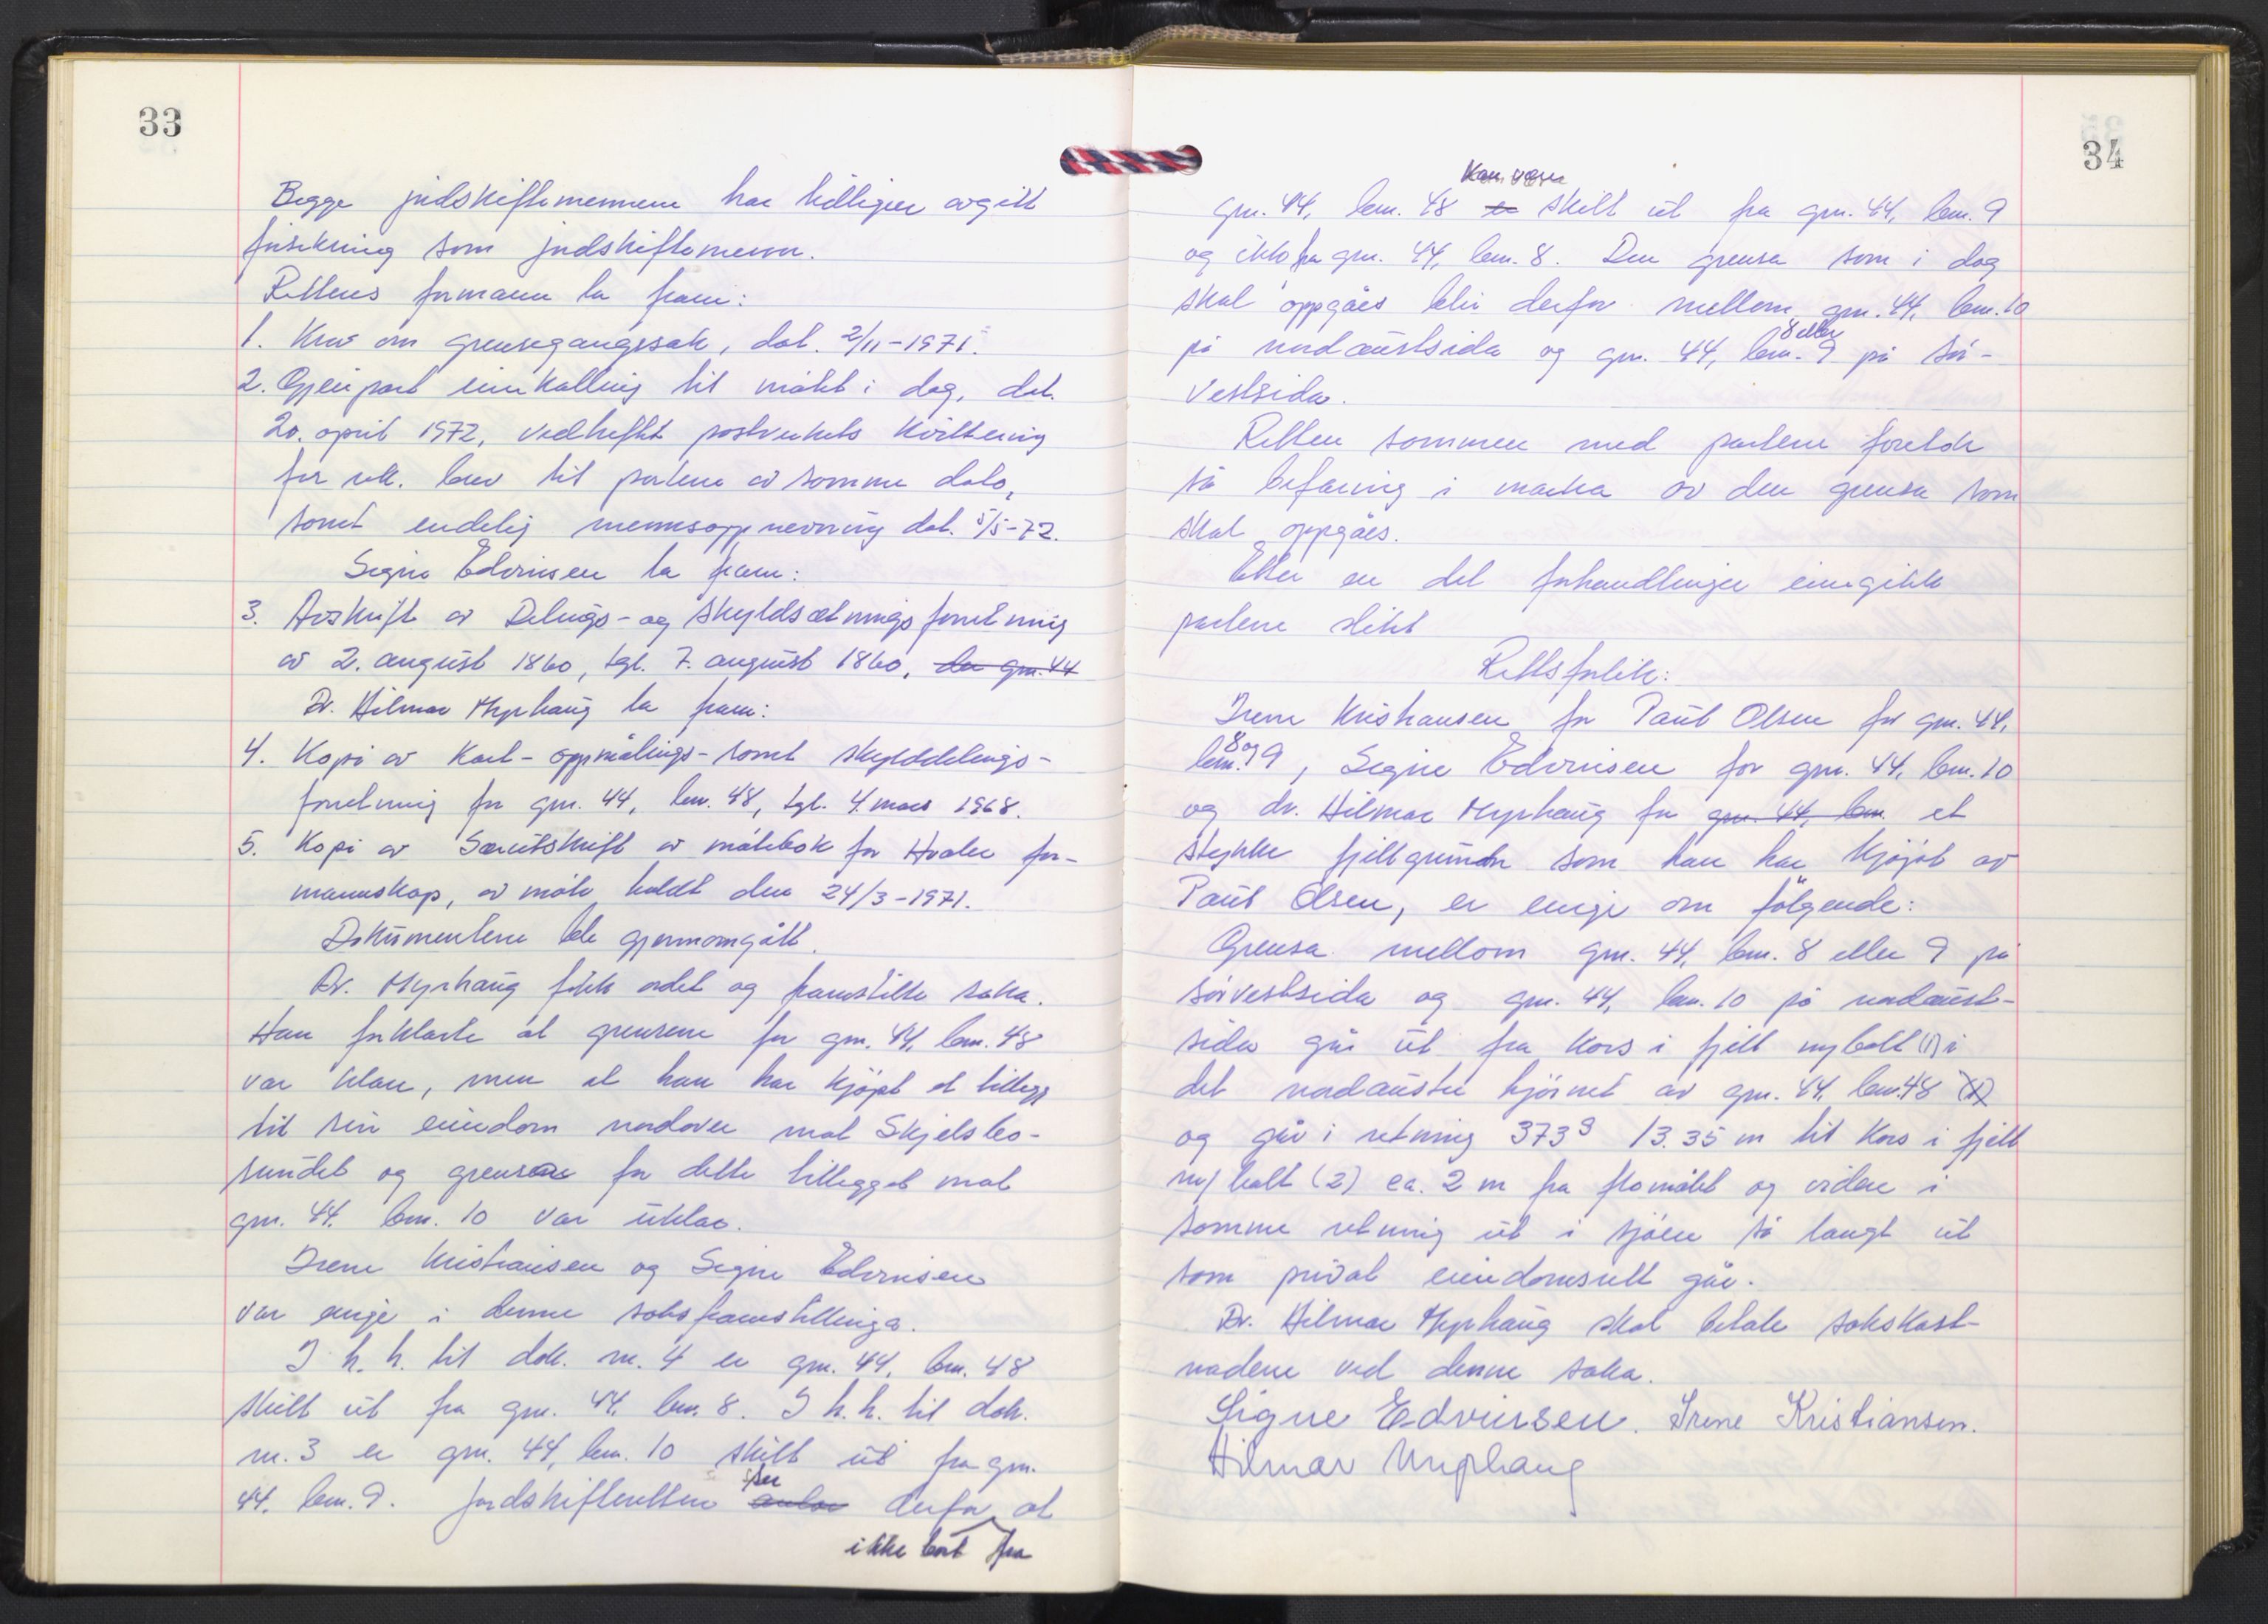 33
Begge jordskiftemennene har tidligere avgitt
forsikring som jordskiftemenn.
Rettens formann la fram:
1. Krav om grensegangssak, dat. 2/11-1971.
2. Gjenpart innkalling til møtet i dag, dat.
20. april 1972, vedheftet postverkets kvittering
for rek. brev til partene av samme dato,
samt endelig mennsoppnevning dat. 5/5-72.
Signe Edvinsen la fram:
3. Avskrift av Delings- og skyldsætningsforretning
av 2. august 1860, tgl. 7. august 1860, da gnr. 44
Dr. Hilmar Myrhaug la fram:
4. Kopi av Kart- oppmålings- samt skylddelings-
forretning for gnr. 44, bnr. 48, tgl. 4. mars 1968.
5. Kopi av Særutskrift av møtebok for Hvaler for-
mannskap, av møte holdt den 24/3-1971.
Dokumentene ble gjennomgått.
Dr. Myrhaug fikk ordet og framstilte saka.
Han forklarte at grensene for gnr. 44, bnr. 48
var klare, men at han har kjøpt et tillegg
til sin eiendom nordover mot Skjelsbo-
sundet og grensene for dette tillegget mot
gnr. 44, bnr. 10 var uklar.
Irene Kristiansen og Signe Edvinsen
var enige i denne saksframstillinga.
I h. h. til dok. nr. 4 er gnr. 44, bnr. 48
skilt ut fra gnr. 44, bnr. 8. I h. h. til dok.
nr. 3 er gnr. 44, bnr. 10 skilt ut fra gnr.
44, bnr. 9. Jordskifteretten antar ser derfor at
ikke bort fra
34
Kan være
gnr. 44, bnr. 48 er skilt ut fra gnr. 44, bnr. 9
og ikke fra gnr. 44, bnr. 8. Den grensa som i dag
skal oppgåes blir derfor mellom gnr. 44, bnr. 10
på nordaustsida og gnr. 44, bnr. 8 eller 9 på sør-
vestsida.
Retten sammen med partene foretok
så befaring i marka av den grensa som
skal oppgåes.
Etter en del forhandlinger inngikk
partene slikt
Rettsforlik:
Irene Kristiansen for Paul Olsen for gnr. 44,
bnr. 8 og 9, Signe Edvinsen for gnr. 44, bnr. 10
og dr. Hilmar Myrhaug for gnr. 44, bnr. et
stykke fjellgrunn som han har kjøpt av
Paul Olsen, er enige om følgende:
Grensa mellom gnr. 44, bnr. 8 eller 9 på
sørvestsida og gnr. 44, bnr. 10 på nordaust-
sida går ut fra kors i fjell m/bolt (1) i
det nordaustre hjørnet av gnr. 44, bnr. 48 (1)
og går i retning 373g 13.35 m til kors i fjell
m/bolt (2) ca. 2 m fra flomålet og videre i
samme retning ut i sjøen så langt ut
som privat eiendomsrett går.
Dr. Hilmar Myrhaug skal betale sakskost-
nadene ved denne saka.
Signe Edvinsen. Irene Kristiansen.
Hilmar Myrhaug